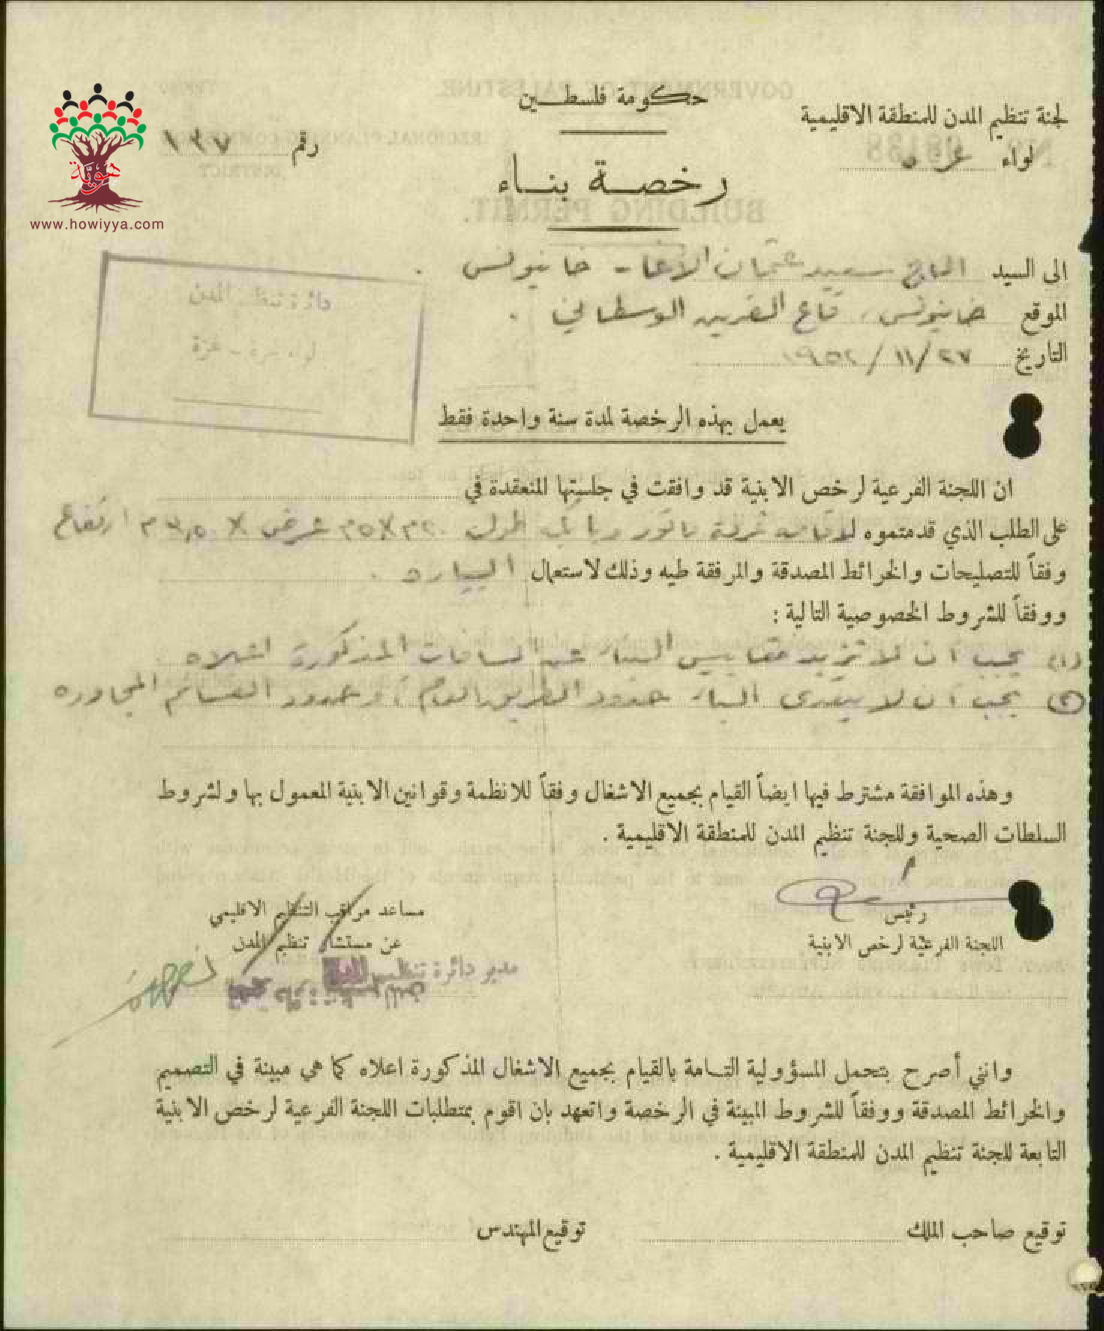 حكومة فلسطين
لجنة تنظيم المدن للمنطقة الاقليمية
لواء غزه
رقم ١٩٧
رخصة بناء
هوية
www.howiyya.com
الى السيد الحاج سعيد عثمان الأغا - خانيونس .
الموقع خانيونس، قاع القرين الوسطاني .
التاريخ ٢٧ / ١١ / ١٩٥٢
دائرة تنظيم المدن
غزة
يعمل بهذه الرخصة لمدة سنة واحدة فقط
ان اللجنة الفرعية لرخص الابنية قد وافقت في جلستها المنعقدة في
على الطلب الذي قدمتموه لاقامة غرفة طول عرض ارتفاع
وفقاً للتصليحات والخرائط المصدقة والمرفقة طيه وذلك لاستعمال
ووفقاً للشروط الخصوصية التالية :
(١) يجب ان لا تزيد مقاييس البناء عن المسافات المذكورة اعلاه .
(٢) يجب ان لا يتعدى البناء حدود الطريق العام ، وحدود القسائم المجاوره
وهذه الموافقة مشترط فيها ايضاً القيام بجميع الاشغال وفقاً للانظمة وقوانين الابنية المعمول بها ولشروط
السلطات الصحية وللجنة تنظيم المدن للمنطقة الاقليمية .
رئيس
اللجنة الفرعية لرخص الابنية
مساعد مراقب التنظيم الاقليمي
عن مستشار تنظيم المدن
مدير دائرة تنظيم المدن
وانني أصرح بتحمل المسؤولية التامة بالقيام بجميع الاشغال المذكورة اعلاه كما هي مبينة في التصميم
والخرائط المصدقة ووفقاً للشروط المبينة في الرخصة واتعهد بان اقوم بمتطلبات اللجنة الفرعية لرخص الابنية
التابعة للجنة تنظيم المدن للمنطقة الاقليمية .
توقيع صاحب الملك
توقيع المهندس